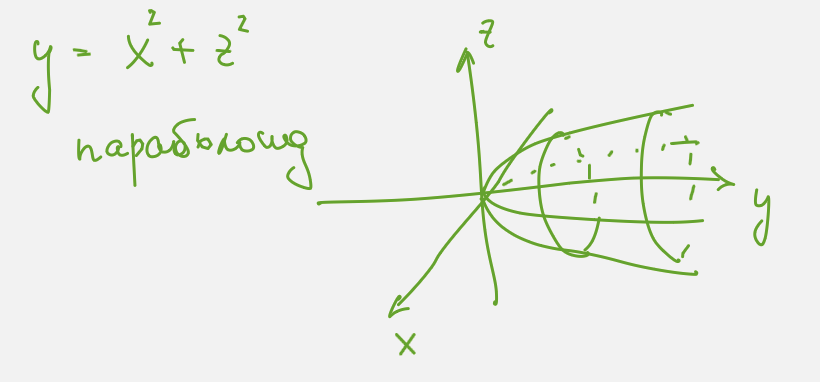 y = x² + z²
параболоид
z
y
x